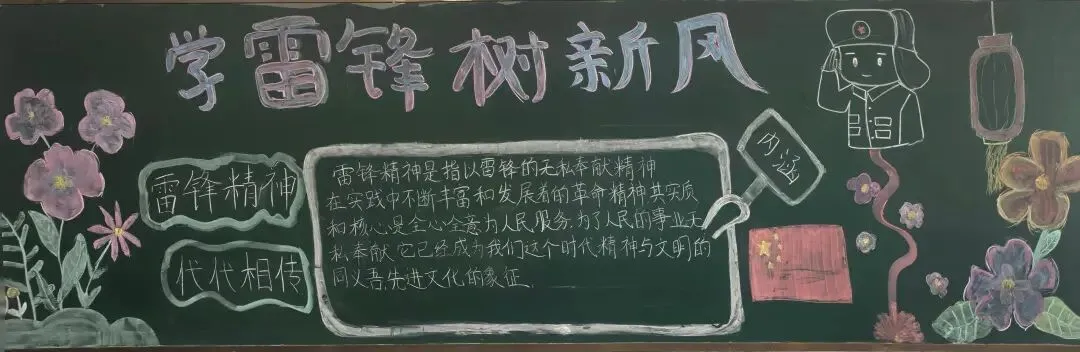 学雷锋树新风
内涵
雷锋精神
代代相传
雷锋精神是指以雷锋的无私奉献精神
在实践中不断丰富和发展着的革命精神其实质
和核心是全心全意为人民服务,为了人民的事业无
私奉献它已经成为我们这个时代精神与文明的
同义吾,先进文化的象征.